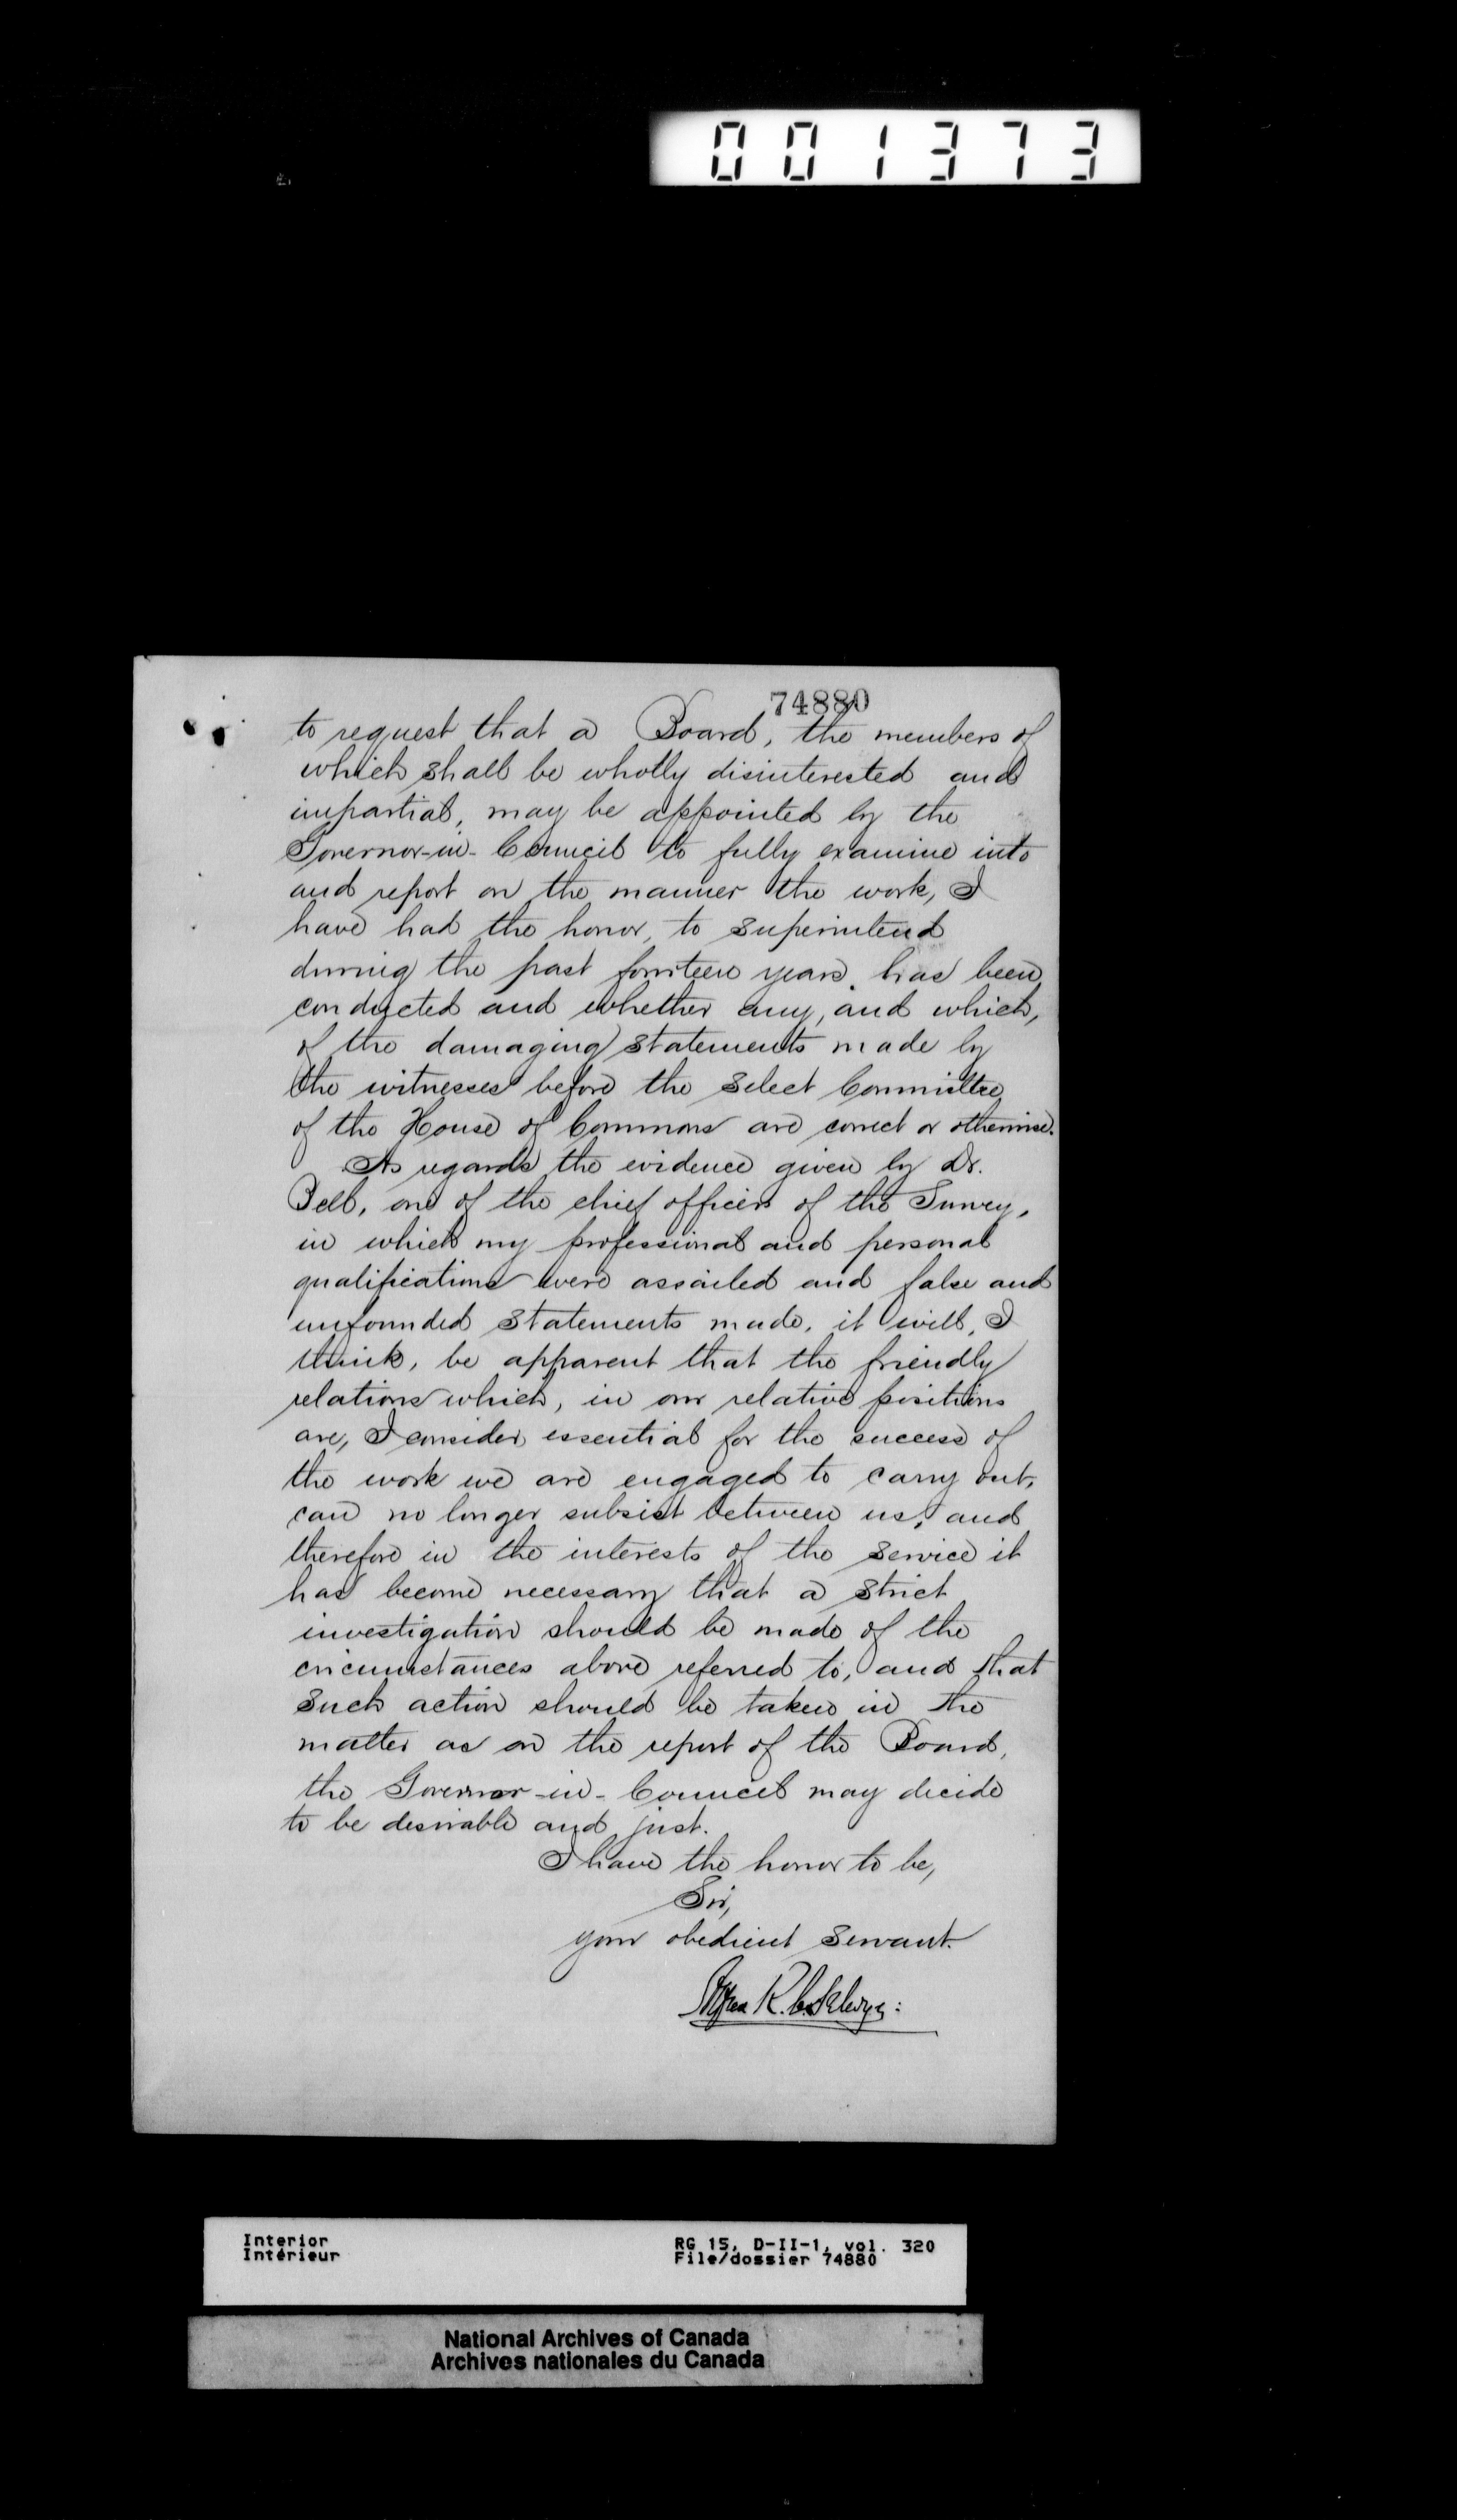 001373
74880
to request that a Board, the members of
which shall be wholly disinterested and
impartial, may be appointed by the
Governor-in-Council to fully examine into
and report on the manner the work, I
have had the honor, to superintend
during the past fourteen years, has been
conducted and whether any, and which,
of the damaging statements made by
the witnesses before the Select Committee
of the House of Commons are correct or otherwise.
As regards the evidence given by Dr.
Bell, one of the chief officers of the Survey,
in which my professional and personal
qualifications were assailed and false and
unfounded statements made, it will, I
think, be apparent that the friendly
relations which, in our relative positions
are, I consider, essential for the success of
the work we are engaged to carry out,
can no longer subsist between us, and
therefore in the interests of the service it
has become necessary that a strict
investigation should be made of the
circumstances above referred to, and that
such action should be taken in the
matter as on the report of the Board,
the Governor-in-Council may decide
to be desirable and just.
I have the honor to be,
Sir,
your obedient servant.
Alfred R. C. Selwyn:
Interior
Intérieur
RG 15, D-II-1, vol. 320
File/dossier 74880
National Archives of Canada
Archives nationales du Canada